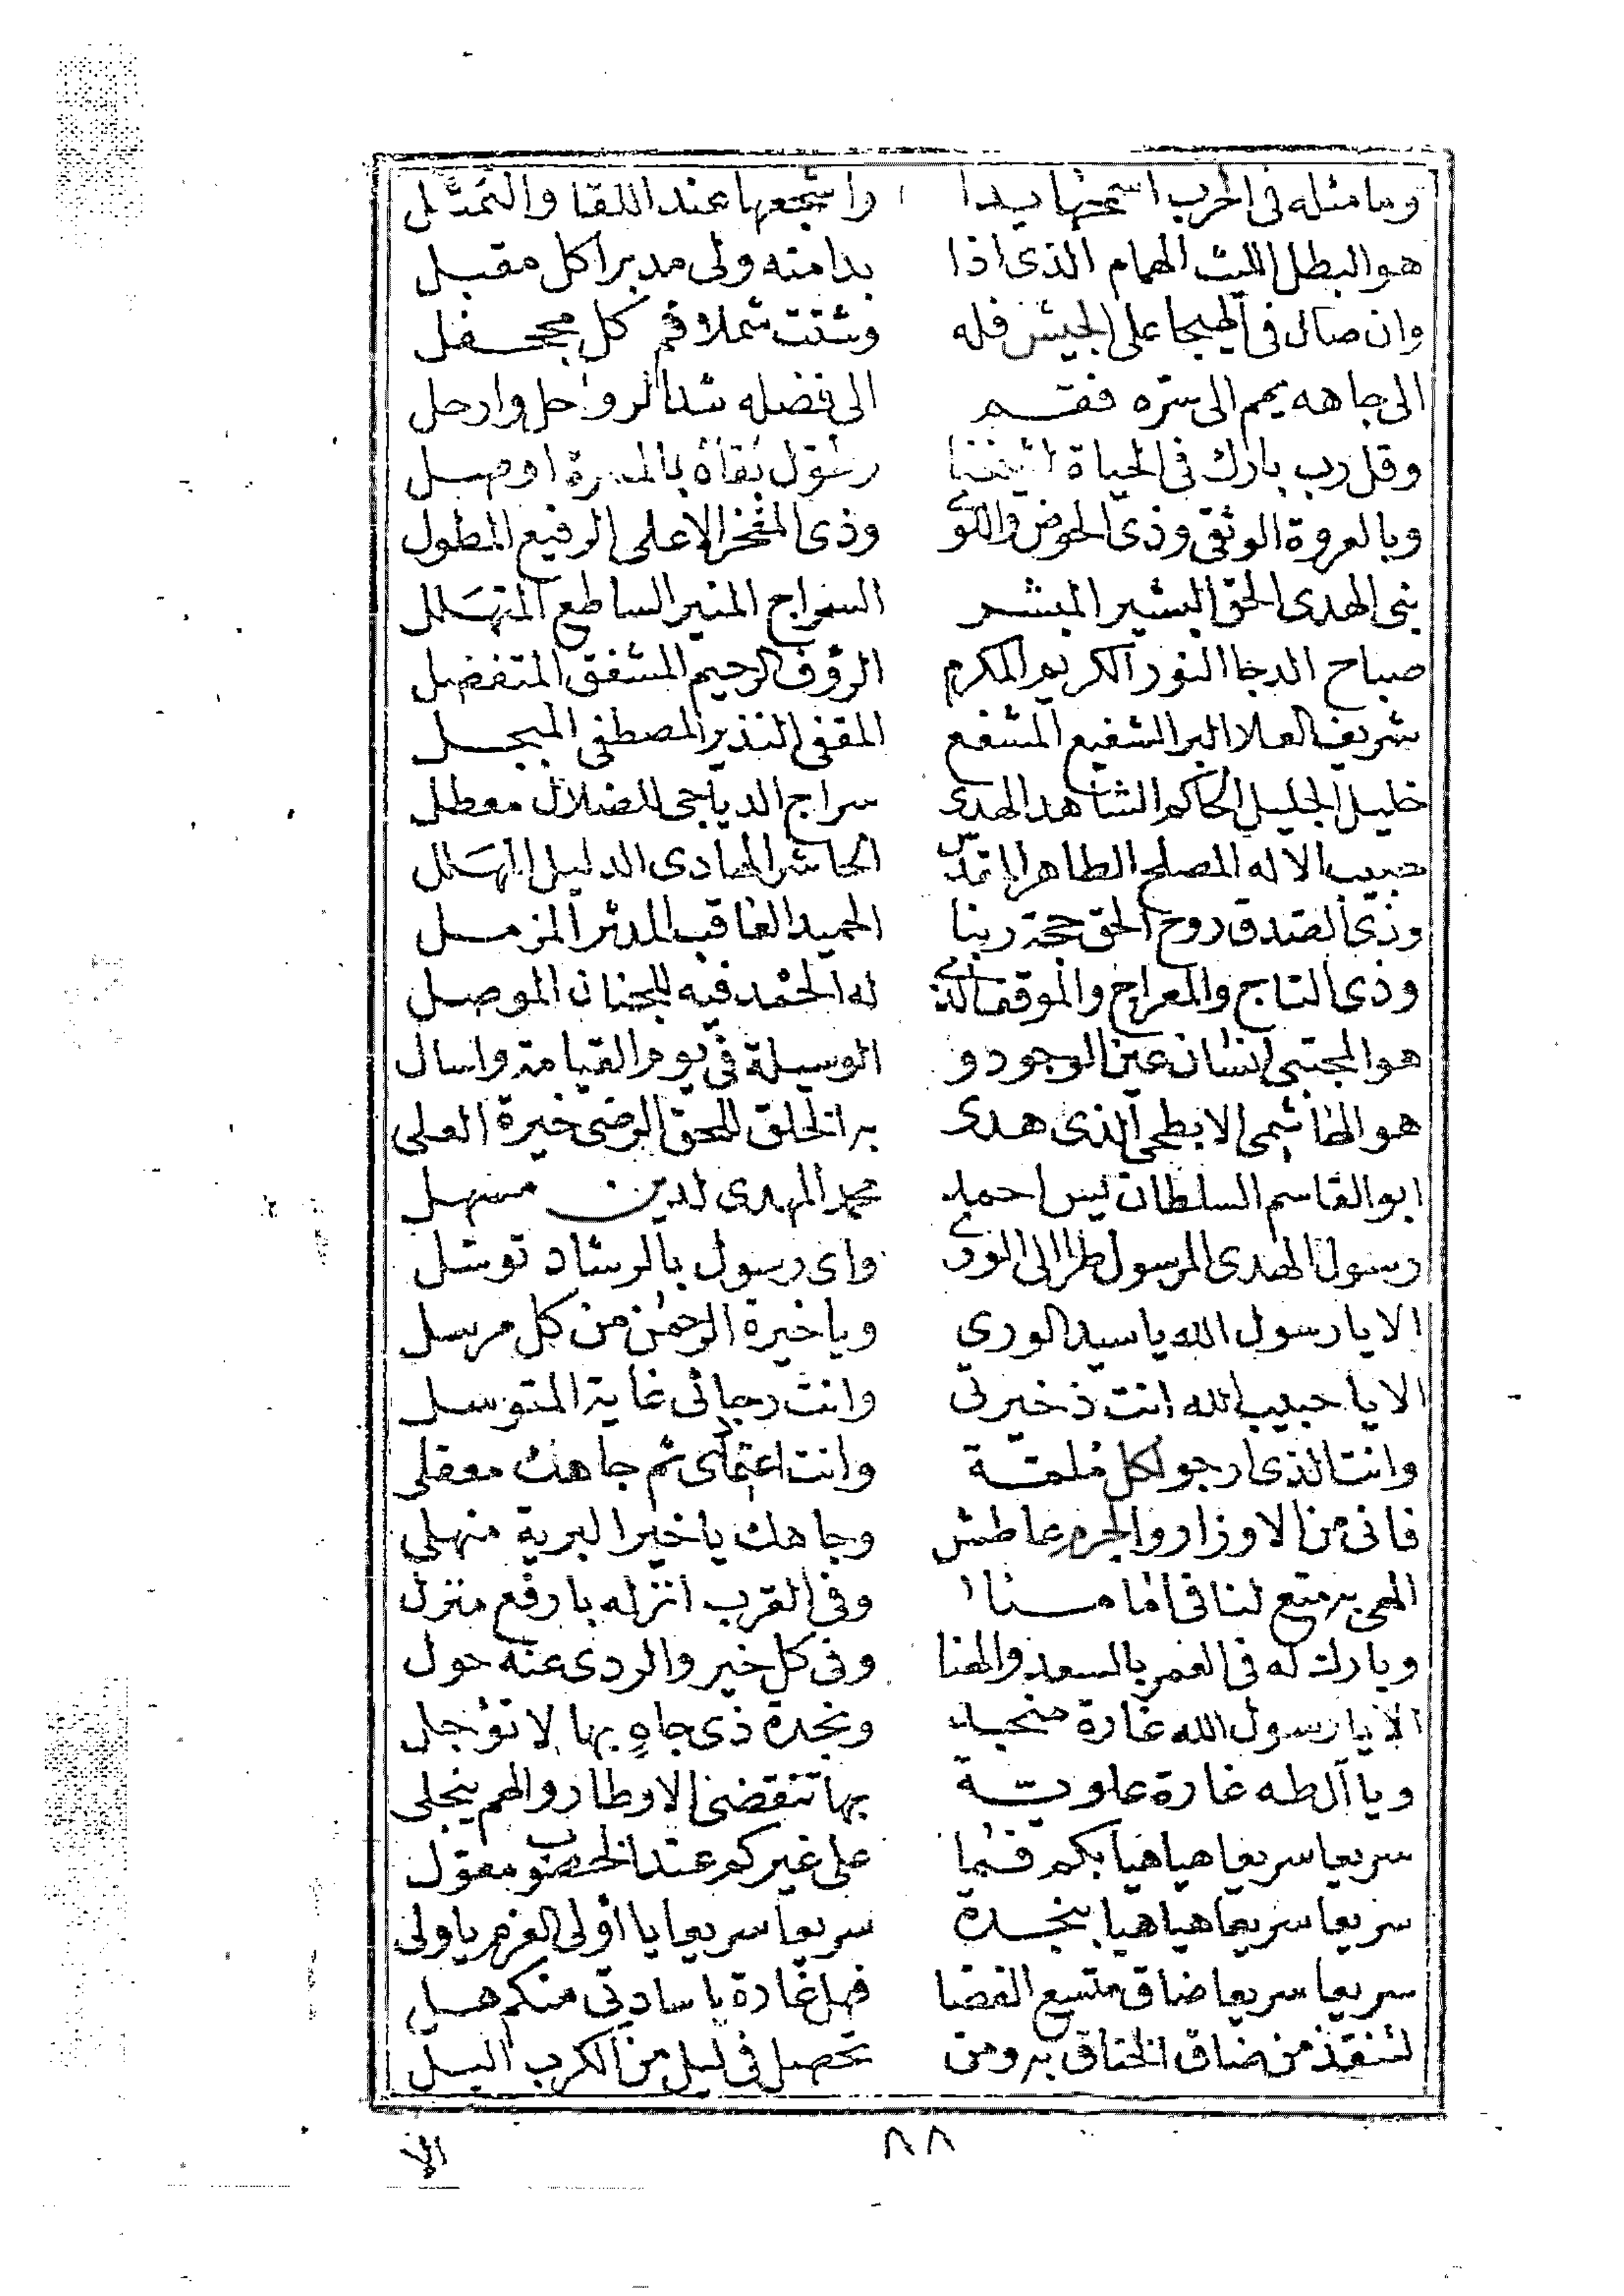 وما مثله فى الحرب اسمحها يدا واشجعها عند اللقا والتمثل
هو البطل الليث الهمام الذى اذا بدا منه ولى مدبرا كل مقبل
وان صال فى الهيجا على الجيش فله وشتت شملا ثم كل مجحفل
الى جاهه يمم الى سره فقم الى فضله شد الرواحل وارحل
وقل رب بارك فى الحياة رسول بقاه بالمسرة اوصل
وبالعروة الوثقى وذى الحوض واللوئ وذى المفخر الاعلى الرفيع المطول
نبى الهدى الحق البشير المبشر السراج المنير الساطع المتهلل
صباح الدجا النور الكريم المكرم الرؤف الرحيم المشفق المتفضل
شريف العلا البر الشفيع المشفع المقفى النذير المصطفى المبجل
خليل الجليل الحاكم الشاهد الهدى سراج الدياجى للضلال معطل
حبيب الاله المصلح الطاهر الحاشر الهادى الدليل المهلل
وذى الصدق روح الحق حجة ربنا الحميد العاقب المدثر المزمل
وذى التاج والمعراج والموقف الذى له الحمد فيه للجنان الموصل
هو المجتبى انسان عين الوجود و الوسيلة فى يوم القيامة واسال
هو الهاشمى الابطحى الذى هدى به الخلق للحق الرضى خيرة العلى
ابو القاسم السلطان يس احمد محمد المهدى لدين مسهل
رسول الهدى المرسول طرا الى الورى واى رسول بالرشاد توسل
الا يا رسول الله يا سيد الورى ويا خيرة الرحمن من كل مرسل
الا يا حبيب الله انت ذخيرتى وانت رجائى غاية المتوسل
وانت الذى ارجو لكل ملمة وانت اعتمادى ثم جاهك معقلى
فانى من الاوزار والجرم عاطش وجاهك يا خير البرية منهلى
الهى به متع لنا فى امامنا وفى القرب انزله بارفع منزل
وبارك له فى العمر بالسعد والهنا وفى كل خير والردى عنه حول
الا يا رسول الله غارة منجد ونجدة ذى جاهٍ بها لا تؤجل
ويا آل طه غارة علوية بها تنقضى الاوطار والهم ينجلى
سريعا سريعا هيا هيا بكم فما على غيركم عند الخصوب معول
سريعا سريعا هيا هيا بنجدة سريعا سريعا يا اولى العزم يا ولى
سريعا سريعا ضاق متسع الفضا فهل غارة يا سادتى منكم هل
لتنقذ من ضاق الخناق به ومن تحصل فى ليل من الكرب اليل
٨٨
الا